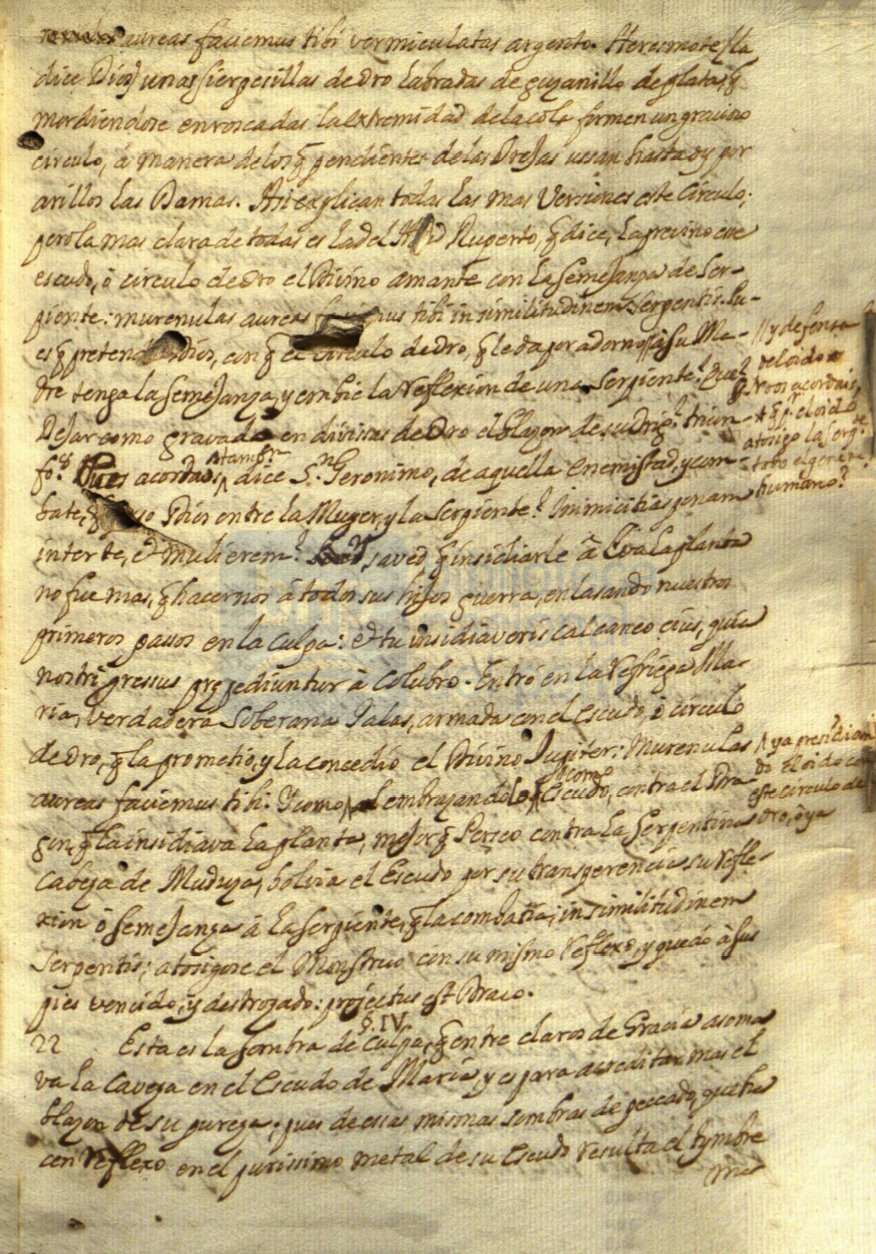 aureas faciemus tibi vermiculatas argento. Haremoste /la
dice Dios/ unas sierpesillas de oro labradas de guzanillo de plata, q̃
mordiendose enroscadas la extremidad de la cola formen un gracioso
circulo, á manera de los q̃ pendientes de las Orejas usan hasta oy por
arillos las Damas. Asi explican todas las mas Versiones este Circulo;
pero la mas clara de todas es la del Ruperto, q̃ dice, la previno ese
escudo, ó circulo de oro el Divino amante con la semejanza de Ser-
piente: murenulas aureas tibi in similitudinem Serpentis. Pu-
es q̃ pretend Dios, con q̃ el circulo de oro, q̃ le da por adorno // á su Ma-
dre tenga la semejanza, y embie la reflexion de una Serpiente?
Dejar como gravado en divisas de Oro el blazon de su Orig.l triun-
fo? Pues acordaos, dice S.n Geronimo, de aquella enemistad, y com-
bate, q̃ puso Dios entre la Muger, y la Serpiente? Inimicitias ponam
inter te, et mulierem? saved q̃ insidiarle á Eva la planta
no fue mas, q̃ hacernos á todos sus hijos guerra, enlasando nuestros
primeros passos en la Culpa: et tu insidiaveris calcaneo eius, quia
nostri gressus præpediuntur à Colubro. Entró en la Refriega Ma-
ria, verdadera Soberana Palas, armada con el escudo, ó circulo
de Oro, q̃ la prometió, y la concedió el Divino Jupiter: Murenulas
aureas faciemus tibi. Y como embrazandolo Escudo, contra el Dra-
gon, q̃ la insidiava la planta, mejor q̃ Perseo contra la Serpentina
Cabeza de Muduza, bolvia el Escudo por su transparencia su refle-
xion ó semejanza á la Serpiente, q̃ la combatia; in similitudinem
Serpentis; atosigose el Monstruo con su mismo reflexo, y quedó à sus
pies vencido, y destrozado: projectus est Draco.
§. IV.
22 Esta es la sombra de Culpa, q̃ entre claros de Gracia asoma
va la Caveza en el Escudo de Maria, y es para acreditar mas el
blazon de su pureza; pues de essas mismas sombras de peccado, que ha
cen reflexo en el purissimo metal de su Escudo resulta el tymbre
// y defensa
del oido
atosigo la Serp.te
todo el genero
humano?
ya presidian
do el oido con
este circulo de
Oro, ó ya